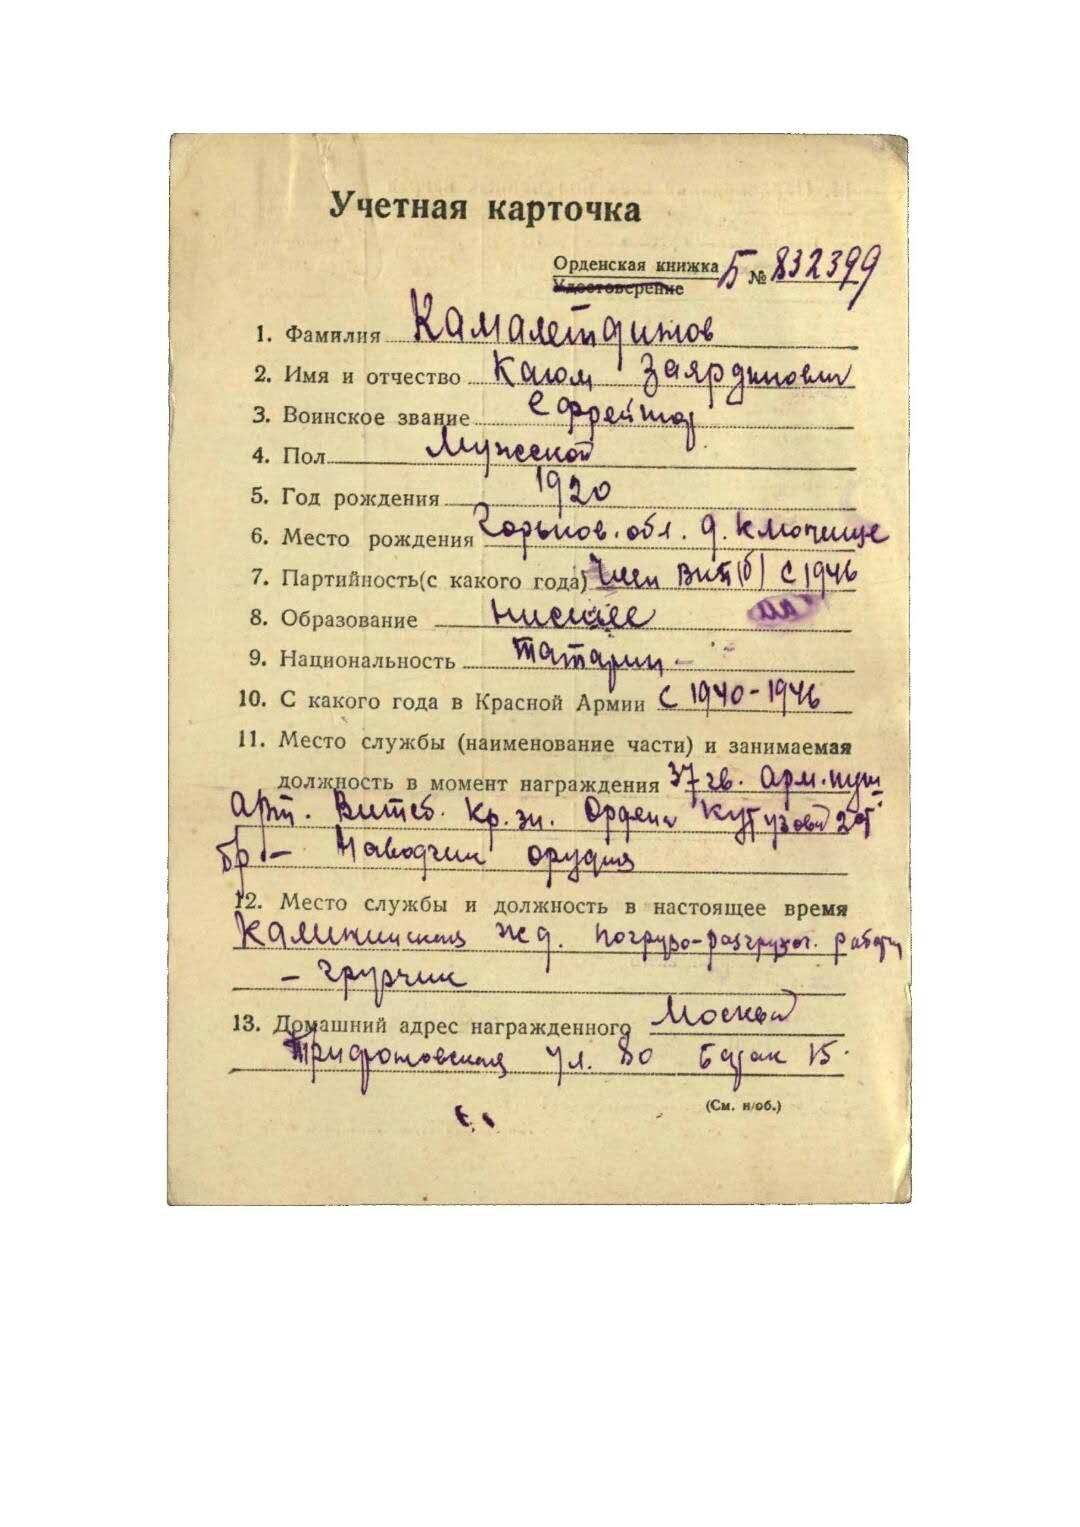 Учетная карточка
Орденская книжка Б № 832399
Удостоверение
1. Фамилия Камалетдинов
2. Имя и отчество Каюм Заярдинович
3. Воинское звание Ефрейтор
4. Пол Мужской
5. Год рождения 1920
6. Место рождения Горьков. обл. д. Ключище
7. Партийность(с какого года) Член ВКП(б) с 1946
8. Образование Низшее
9. Национальность Татарин -
10. С какого года в Красной Армии с 1940-1946
11. Место службы (наименование части) и занимаемая
должность в момент награждения 37 гв. Арм. пуш
Арт. Витеб. Кр. зн. Ордена Кутузова 2 ст
бр - Наводчик орудия
12. Место службы и должность в настоящее время
Калининская ж д. погрузо-разгрузоч. работы
- грузчик
13. Домашний адрес награжденного Москва
Трифоновская ул. 80 барак 15.
(См. н/об.)